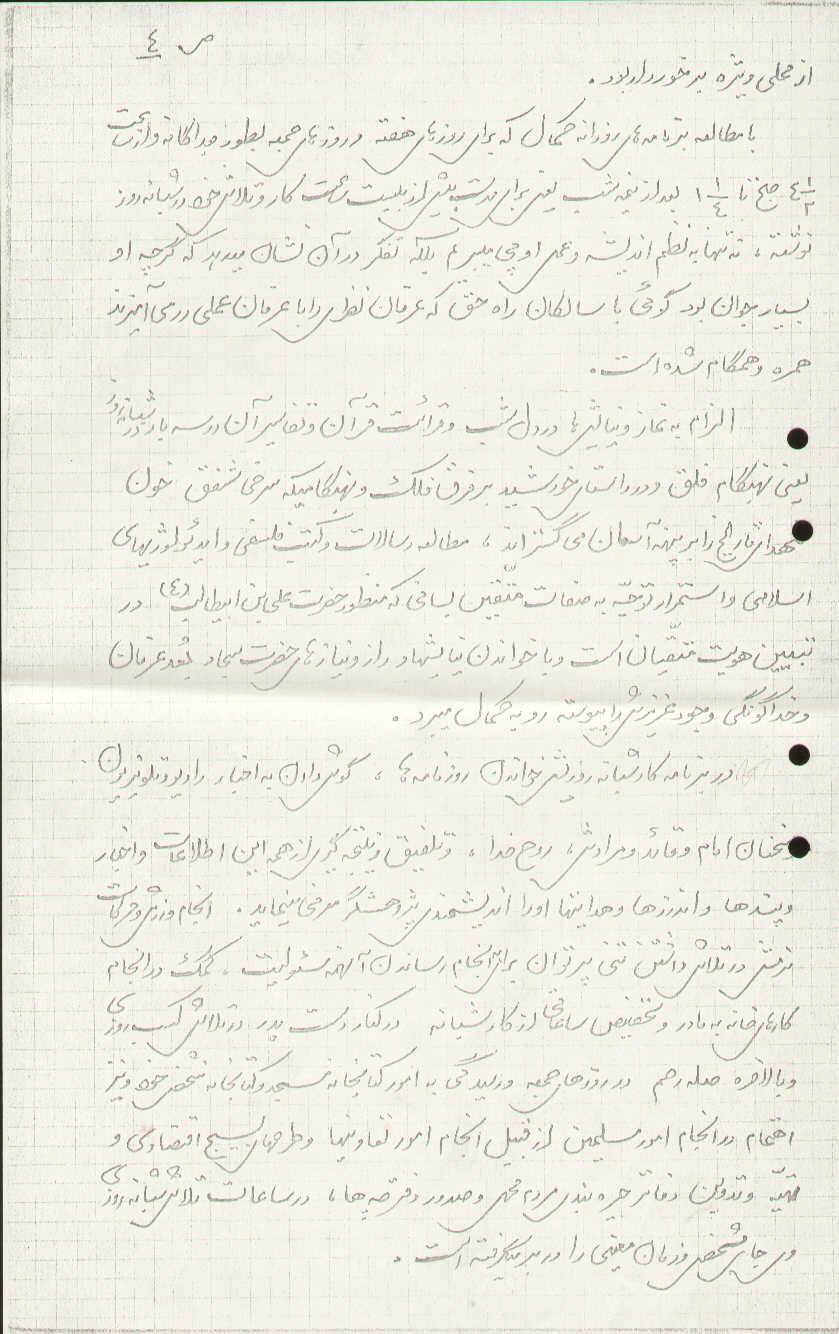 ص ٤
از محلی ویژه برخوردار بود.
با مطالعه برنامه‌های روزانه کمال که برای روزهای هفته و روزهای جمعه بطور جداگانه و از ساعت
٤ ١/٢ صبح تا ١ ١/٤ بعد از نیمه شب یعنی برای مدت بیش از بیست ساعت کار و تلاش خود در شبانه روز
نوشته، نه تنها به نظم اندیشه و عمل او پی میبریم بلکه تفکر در آن نشان میدهد که گرچه او
بسیار جوان بود گوئی با سالکان راه حق که عرفان نظری را با عرفان عملی در می‌آمیزند
همره و همگام شده است.
الزام به نماز و نیایش‌ها در دل شب و قرائت قرآن و تفاسیر آن در سه بار در شبانه‌روز
یعنی بهنگام فلق و در راستای خورشید بر فرق فلک و بهنگامیکه سرخی شفق خون
شهدای تاریخ را بر پهنه آسمان می گستراند، مطالعه رسالات و کتب فلسفی و ایدئولوژیهای
اسلامی و استمرار توجّه به صفات متّقین بسانی که منظور حضرت علی بن ابیطالب (ع) در
تبیین هویت متقّیان است و با خواندن نیایشها و راز و نیازهای حضرت سجاد بُعد عرفان
و خداگونگی وجود عزیزش را پیوسته رو به کمال میبرد.
در برنامه کار شبانه روزیش خواندن روزنامه‌ها، گوش دادن به اخبار رادیو و تلویزیون
و سخنان امام و قائد و مرادش، روح خدا، و تلفیق و نتیجه گیری از همه این اطلاعات و اخبار
و پندها و اندرزها و هدایتها او را اندیشمندی پژوهشگر معرفی مینماید. انجام ورزش و حرکات
نرمش در تلاش داشتن تنی پرتوان برای انجام رساندن آنهمه مسئولیت، کمک در انجام
کارهای خانه به مادر و تخصیص ساعاتی از کار شبانه در کنار دست پدر در تلاش کسب روزی
و بالاخره صله رحم در روزهای جمعه و رسیدگی به امور کتابخانه مسجد و کتابخانه شخصی خود و نیز
اهتمام در انجام امور مسلمین از قبیل انجام امور تعاونیها و طرحهای بسیج اقتصادی و
تهیّه و تدوین دفاتر جیره بندی مردم محل و صدور دفترچه‌ها، در ساعات تلاش شبانه روزی
وی جای مشخص و زمان معینی را در بر میگرفته است.